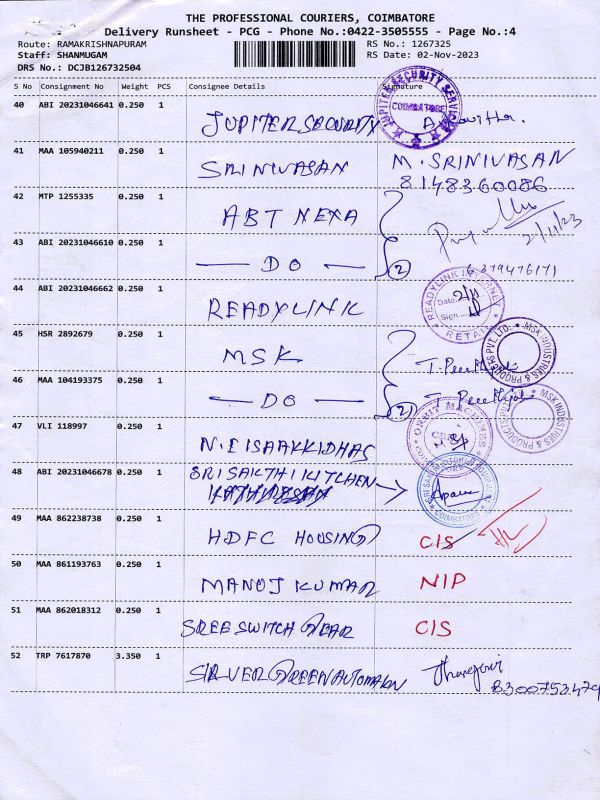 THE PROFESSIONAL COURIERS, COIMBATORE
Delivery Runsheet - PCG - Phone No.:0422-3505555 - Page No.:4
Route: RAMAKRISHNAPURAM RS No.: 1267325
Staff: SHANMUGAM RS Date: 02-Nov-2023
DRS No.: DCJB126732504
S No Consignment No Weight PCS Consignee Details Signature
40 ABI 20231046641 0.250 1 JUPITER SECURITY
JUPITER SECURITY SERVICES COIMBATORE
41 MAA 105940211 0.250 1 SRINIVASAN M. SRINIVASAN
8148360086
42 MTP 1255335 0.250 1 ABT NEXA
2/11/23
43 ABI 20231046610 0.250 1 — DO — (2) 6379476171
44 ABI 20231046662 0.250 1 READYLINK
READYLINK INTERNET Date: 2/11 Sign. RETAIL
45 HSR 2892679 0.250 1 MSK
MSK INDUSTRIES & PRODUCTS PVT. LTD.
46 MAA 104193375 0.250 1 — DO — (2)
MSK INDUSTRIES & PRODUCTS PVT
47 VLI 118997 0.250 1 N. EISAAKKIDHAS
ORBIT MACHINES
48 ABI 20231046678 0.250 1 SRI SAKTHI KITCHEN
COIMBATORE
49 MAA 862238738 0.250 1 HDFC HOUSING CIS
50 MAA 861193763 0.250 1 MANOJ KUMAR NIP
51 MAA 862018312 0.250 1 SREE SWITCH GEAR CIS
52 TRP 7617870 3.350 1 SILVER GREEN AUTOMATION